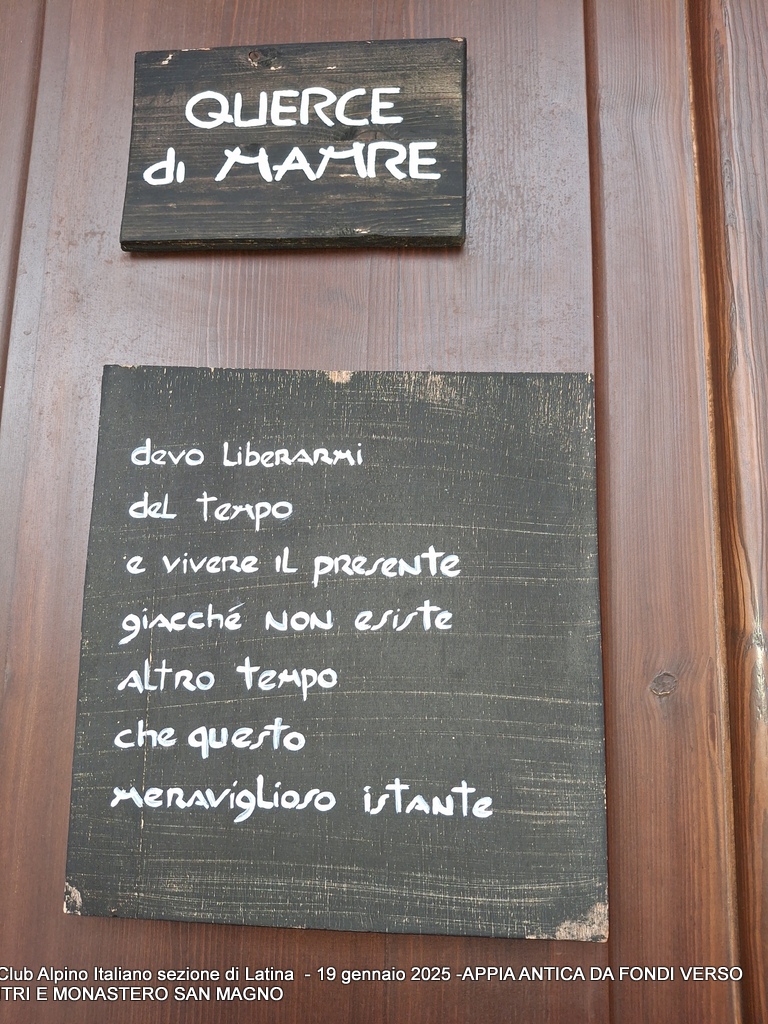 QUERCE
di MAMRE
devo liberarmi
del tempo
e vivere il presente
giacché non esiste
altro tempo
che questo
meraviglioso istante
Club Alpino Italiano sezione di Latina - 19 gennaio 2025 -APPIA ANTICA DA FONDI VERSO
TRI E MONASTERO SAN MAGNO